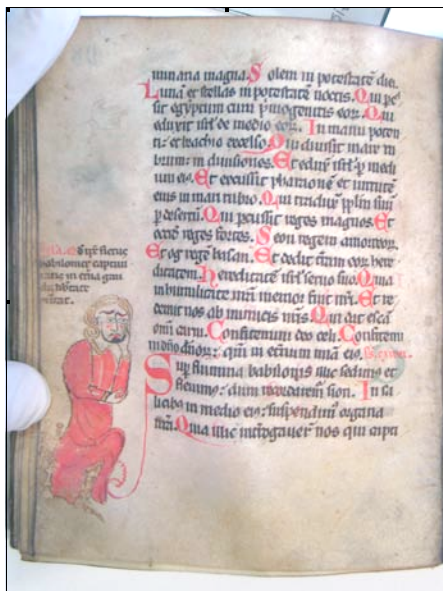 minaria magna. Solem in potestatē diei.
Lunā et stellas in potestatē noctis. Qui pcuſ
sit egyptum cum pmogenitis eoꝝ. Qui
eduxit isrl de medio eoꝝ. In manu poten
ti: et brachio excelso. Qui diuisit mare ru
brum: in diuisiones. Et eduxit isrl p medi
um eiꝰ. Et excussit pharaonē et uirtutē
eius in mari rubro. Qui traduxit pplm suū
p desertū. Qui pcussit reges magnos. Et
occid reges fortes. Seon regem amorreoꝝ.
Et og regē basan. Et dedit terram eoꝝ here
ditatem. Hereditatē isrl seruo suo. Quia
in humilitate nrā memor fuit nrī. Et re
demit nos ab inimicis nrīs. Qui dat escā
omī carni. Confitemini deo celi. Confitemi
ni dño dñoꝝ: qm in eternum mīa eiꝰ.
Sup flumina babilonis illic sedimus et
fleuimꝰ: dum recordaremur sion. In sa
licibꝰ in medio eiꝰ: suspendimꝰ organa
nrā. Quia illic interrogauerūt nos qui capti